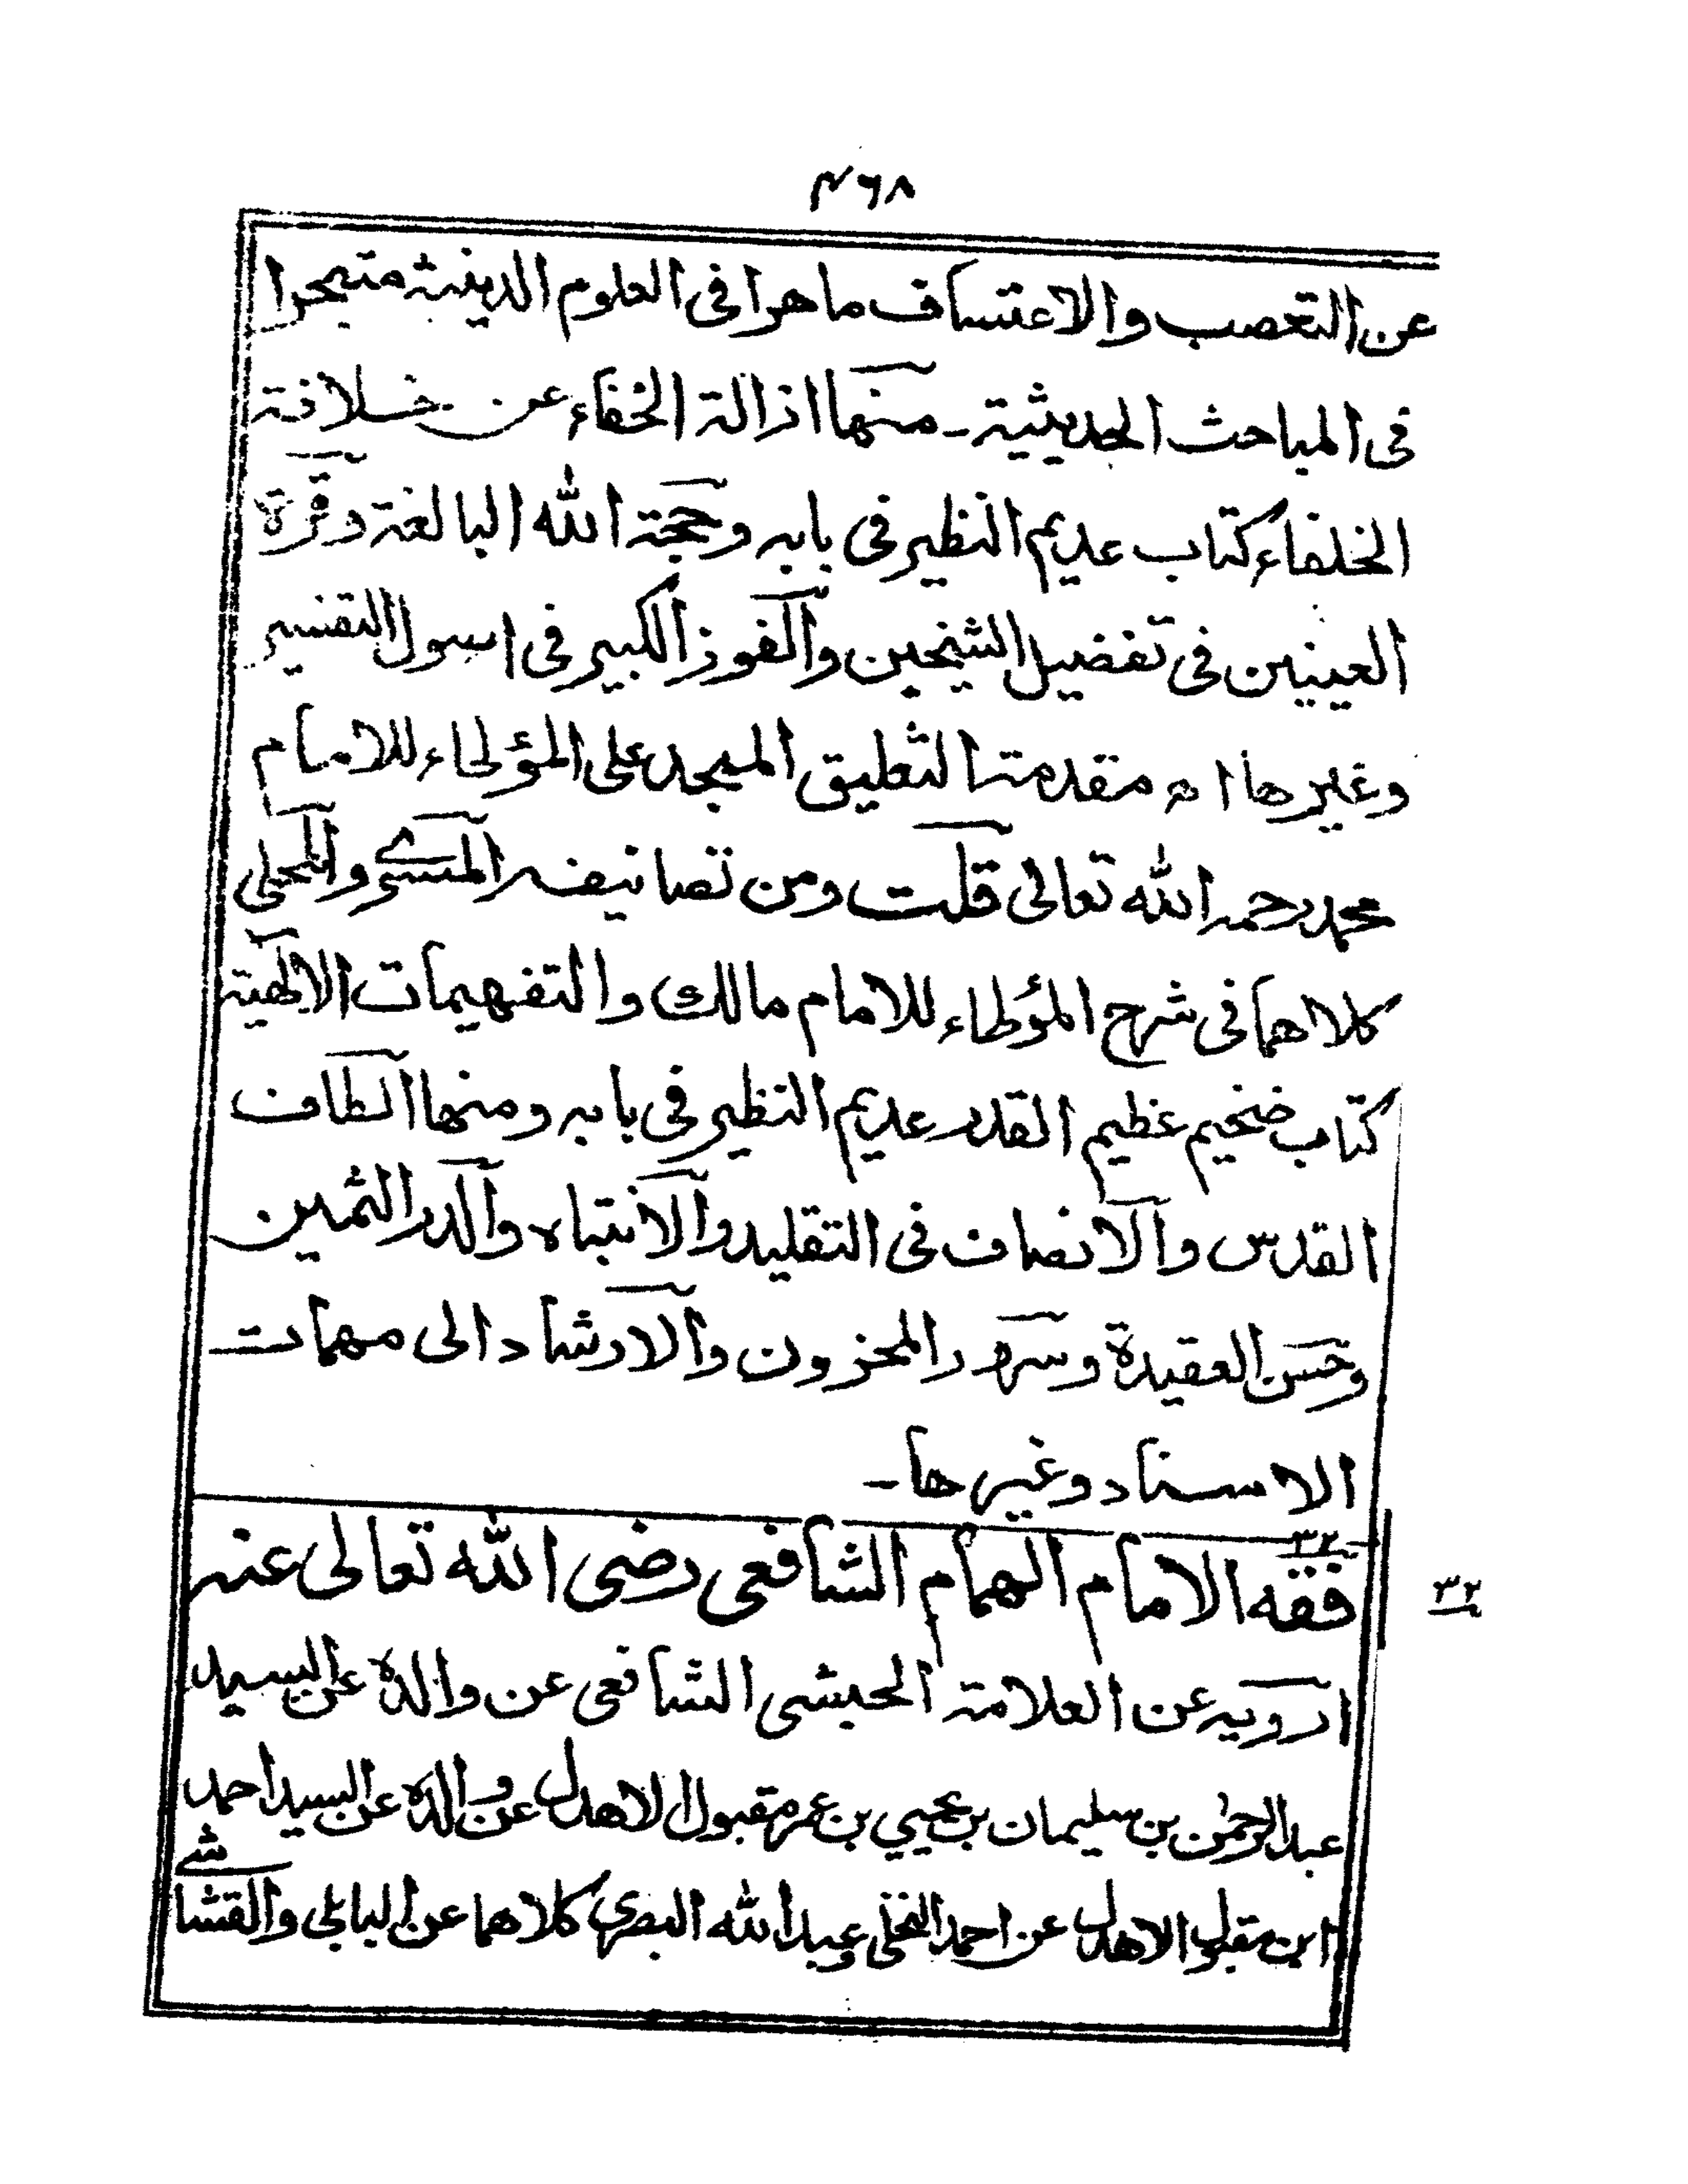 ۴۶۸
عن التعصب والاعتساف ماهرا فی العلوم الدینیة متبحرا
فی المباحث الحدیثیة۔ منها ازالة الخفاء عن خلافة
الخلفاء کتاب عدیم النظیر فی بابه وحجة الله البالغة وقرة
العینین فی تفضیل الشیخین والفوز الکبیر فی اصول التفسیر
وغیرها اه مقدمة التعلیق الممجد علی المؤطاء للامام
محمد رحمه الله تعالی قلت ومن تصانیفه المسوی والمحلی
کلاهما فی شرح المؤطاء للامام مالك والتفهیمات الالهیة
کتاب ضخیم عظیم القدر عدیم النظیر فی بابه ومنها الطاف
القدس والانصاف فی التقلید والانتباه والدر الثمین
وحسن العقیدة وسرور المحزون والارشاد الی مهمات
الاسناد وغیرها۔
۳۲
فقه الامام الهمام الشافعی رضی الله تعالی عنه
۳۲
ارویه عن العلامة الحبشی الشافعی عن والده عن السید
عبدالرحمٰن بن سلیمان بن یحیی بن عمر مقبول الاهدل عن والده عن السید احمد
ابن مقبول الاهدل عن احمد النخلی وعبدالله البصری کلاهما عن البابلی والقشاشی